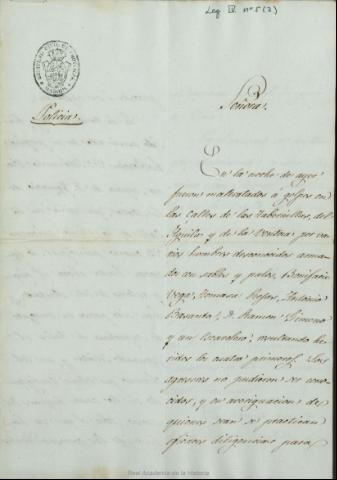 Leg. IV nº 5 (2)
Policia.
Señora.
En la noche de ayer
fueron maltratados á golpes en
las calles de las Tabernillas, del
Aguila y de la Ventosa por va-
rios hombres desconocidos arma-
dos con sables y palos, Bonifacio
Vega, Tomasa Rojas, Antonio
Basanta, D. Ramon Jimeno
y un Brasileño; resultando he-
ridos los cuatro primeros. Los
agresores no pudieron ser cono-
cidos, y en averiguacion de
quienes sean se practican
eficaces diligencias para
Real Academia de la Historia